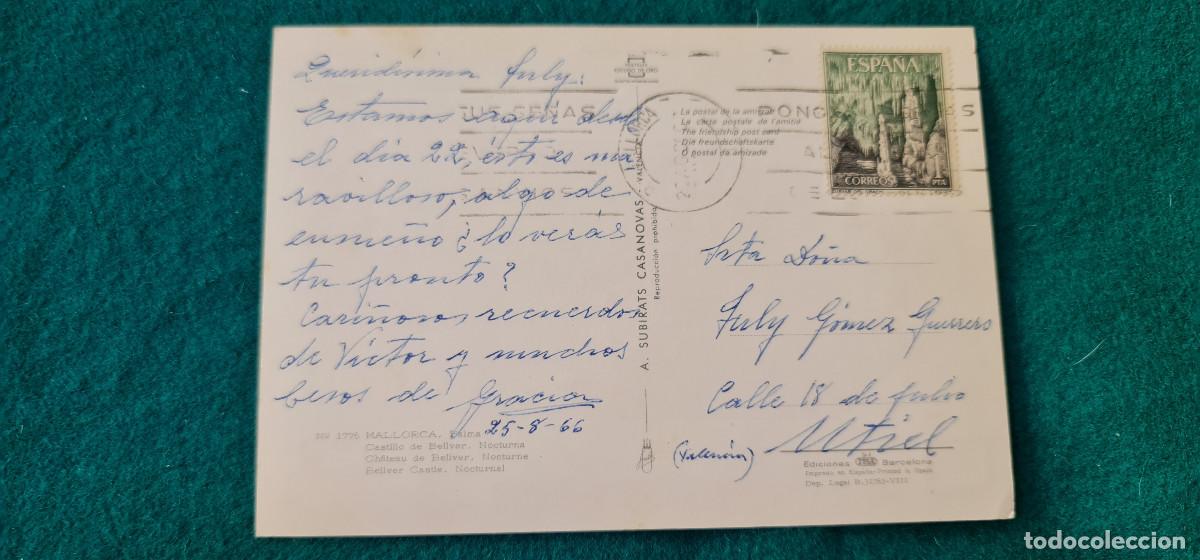 Queridísima July:
Estamos aquí desde
el día 22, ésto es ma
ravilloso, algo de
ensueño ¿lo verás
tu pronto?
Cariñosos recuerdos
de Víctor y muchos
besos de Gracia
25-8-66
1775 MALLORCA. Palma
Castillo de Bellver. Nocturna
Château de Bellver. Nocturne
Bellver Castle. Nocturnal
A. SUBIRATS CASANOVAS - VALENCIA
Reproducción prohibida
La postal de la amistad
La carte postale de l'amitié
The friendship post card
Die freundschaftskarte
O postal da amizade
ESPAÑA
CORREOS 1 PTA
Srta Doña
July Gómez Guerrero
Calle 18 de Julio
Utiel
(Valencia)
Ediciones Barcelona
Dep. Legal B.
todocoleccion